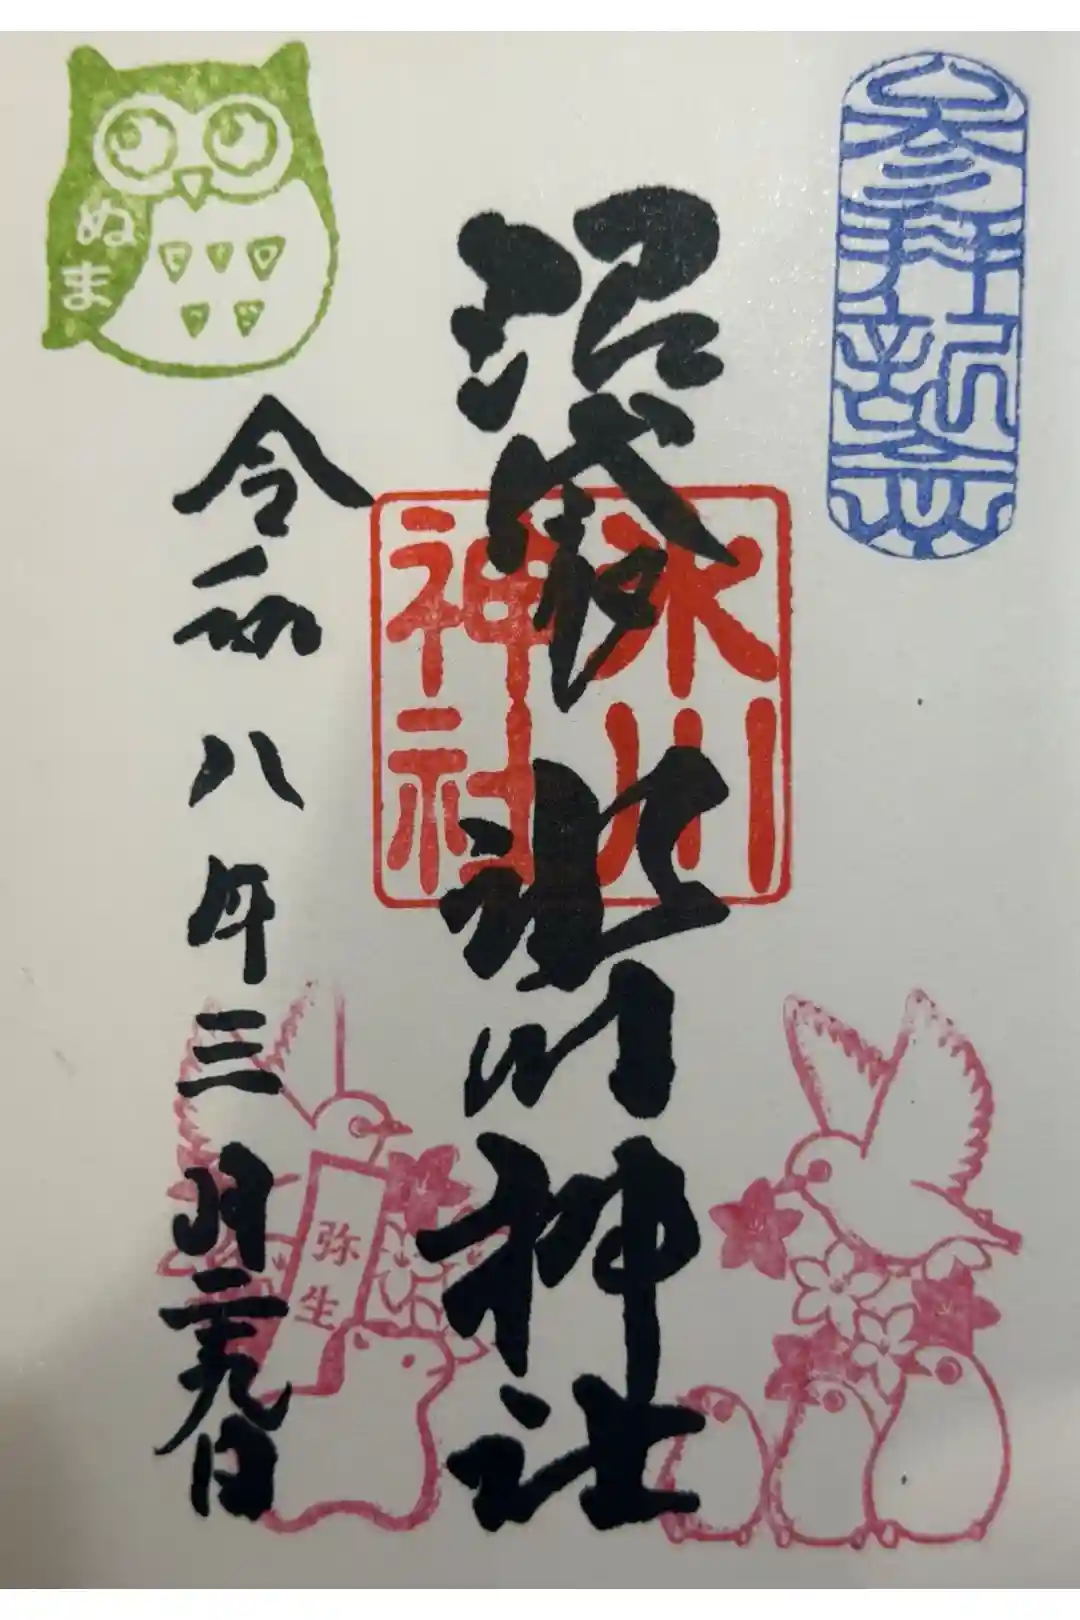 参拝祈誉
沼袋氷川神社
氷川
神社
令和八年三月二十九日
弥生
ぬま